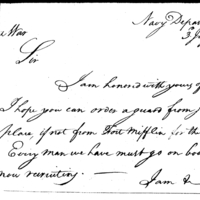 Navy Depar
3 J
e War
Sir
I am honored with yours of
I hope you can order a guard from
place, if not from Fort Mifflin for th
Every man we have must go on boa
now recruiting. —
I am &